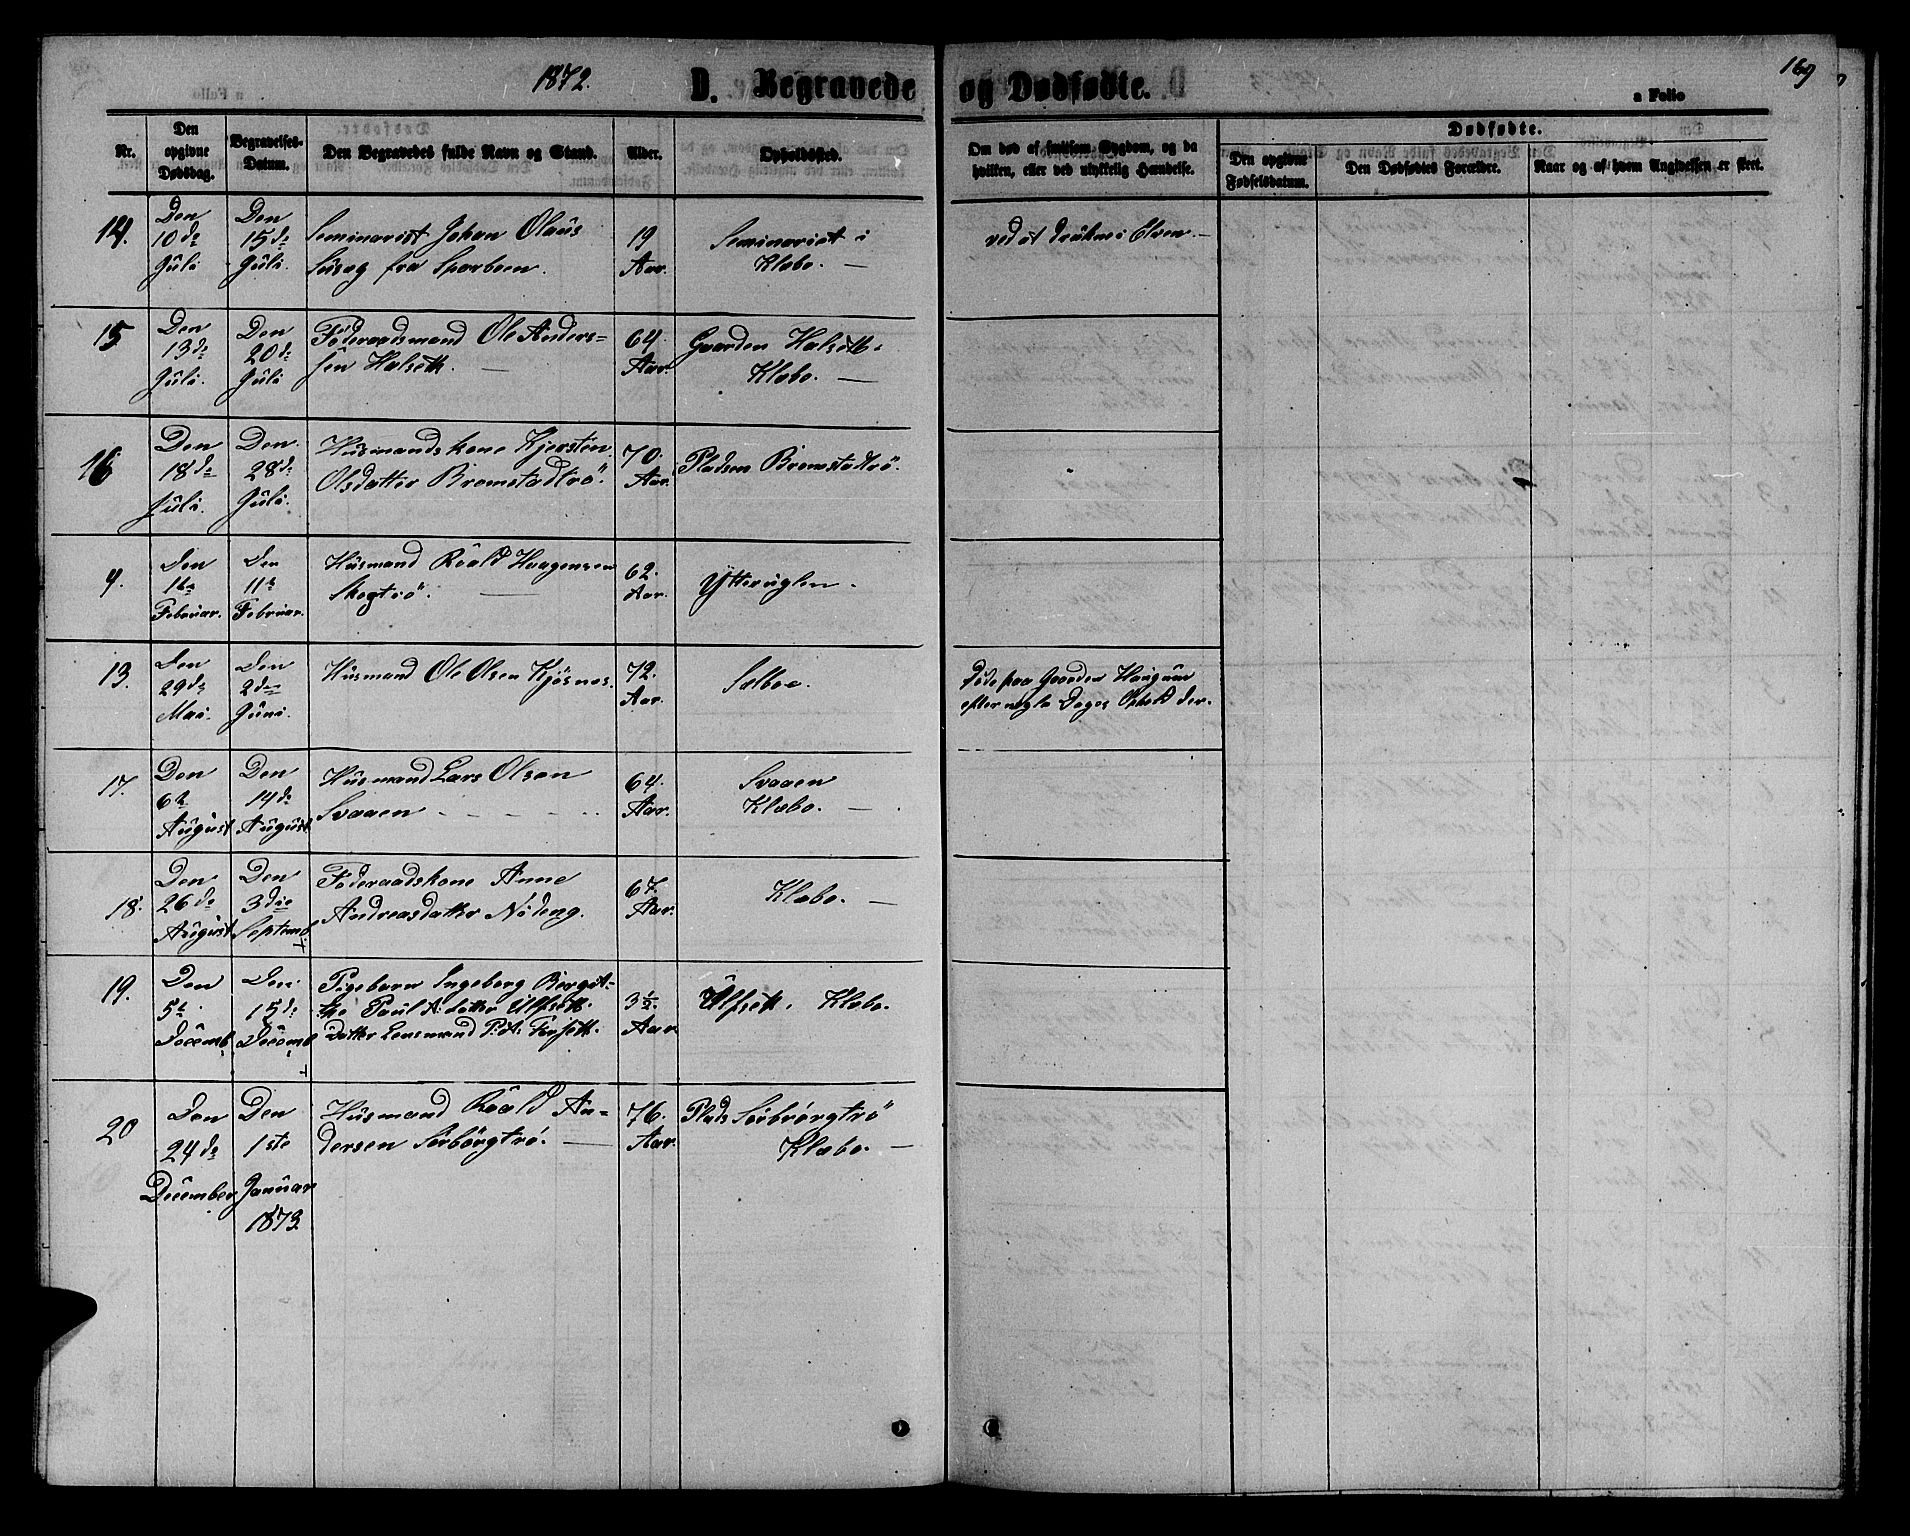 1872.
D. Begravede og Dødfødte.
169
a Folio
Nr.
Den opgivne Dødsdag.
Begravelses-Datum.
Den Begravedes fulde Navn og Stand.
Alder.
Opholdssted.
Om død af smitsom Sygdom, og da
hvilken, eller ved ulykkelig Hændelse.
Dødfødte.
Den opgivne Fødselsdatum.
Den Dødfødtes Forældre.
Naar og af hvem Angivelsen er skeet.
14. Den Den Seminarist Johan Olaus 19 Seminariet i ved at drukne i Elven. —
10de 15de fra Sparboen. Aar. Klæbo. —
Juli Juli.
15 Den Den Föderaadsmand Ole Anders= 64. Gaarden Halseth.
13de 20de sen Halseth. — Aar. Klæbo. —
Juli. Juli
16 Den Den. Husmandskone Kjersten 70. Pladsen Bremstadtrö.
18de 28de Olsdatter Bremstadtrö. Aar.
Juli Juli.
4. Den Den Husmand Roald Haagensen 62. Ytteruglen.
1te 11te Skogtrö. — Aar.
Februar. Februar.
13. Den Den Husmand Ole Olsen Kjösnes. 72. Selboe. Döde paa Gaarden Haugum
29de 2den Aar. efter nogle Dages Ophold der.
Mai. Juni.
17. Den Den Husmand Lars Olsen 64. Svaaen
6te 14de Svaaen Aar. Klæbo. —
August August
18. Den Den Föderaadskone Anne 67. Klæbo. —
26de 3die Andreasdatter Nödeng. Aar.
August Septemb.
19. Den Den Pigebarn Ingeborg Bergit-
5te 15de the Paul A. datter Ulfseth. 3½ Ulfseth. Klæbo.
Decemb. Decemb. Datter Lensmand P. A. Forseth. Aar
20 Den Den Husmand Roald An= 76. Plads Sörbörgtrö
24de 1ste dersen Sörbörgtrö. — Aar. Klæbo. —
December Januar
1873.